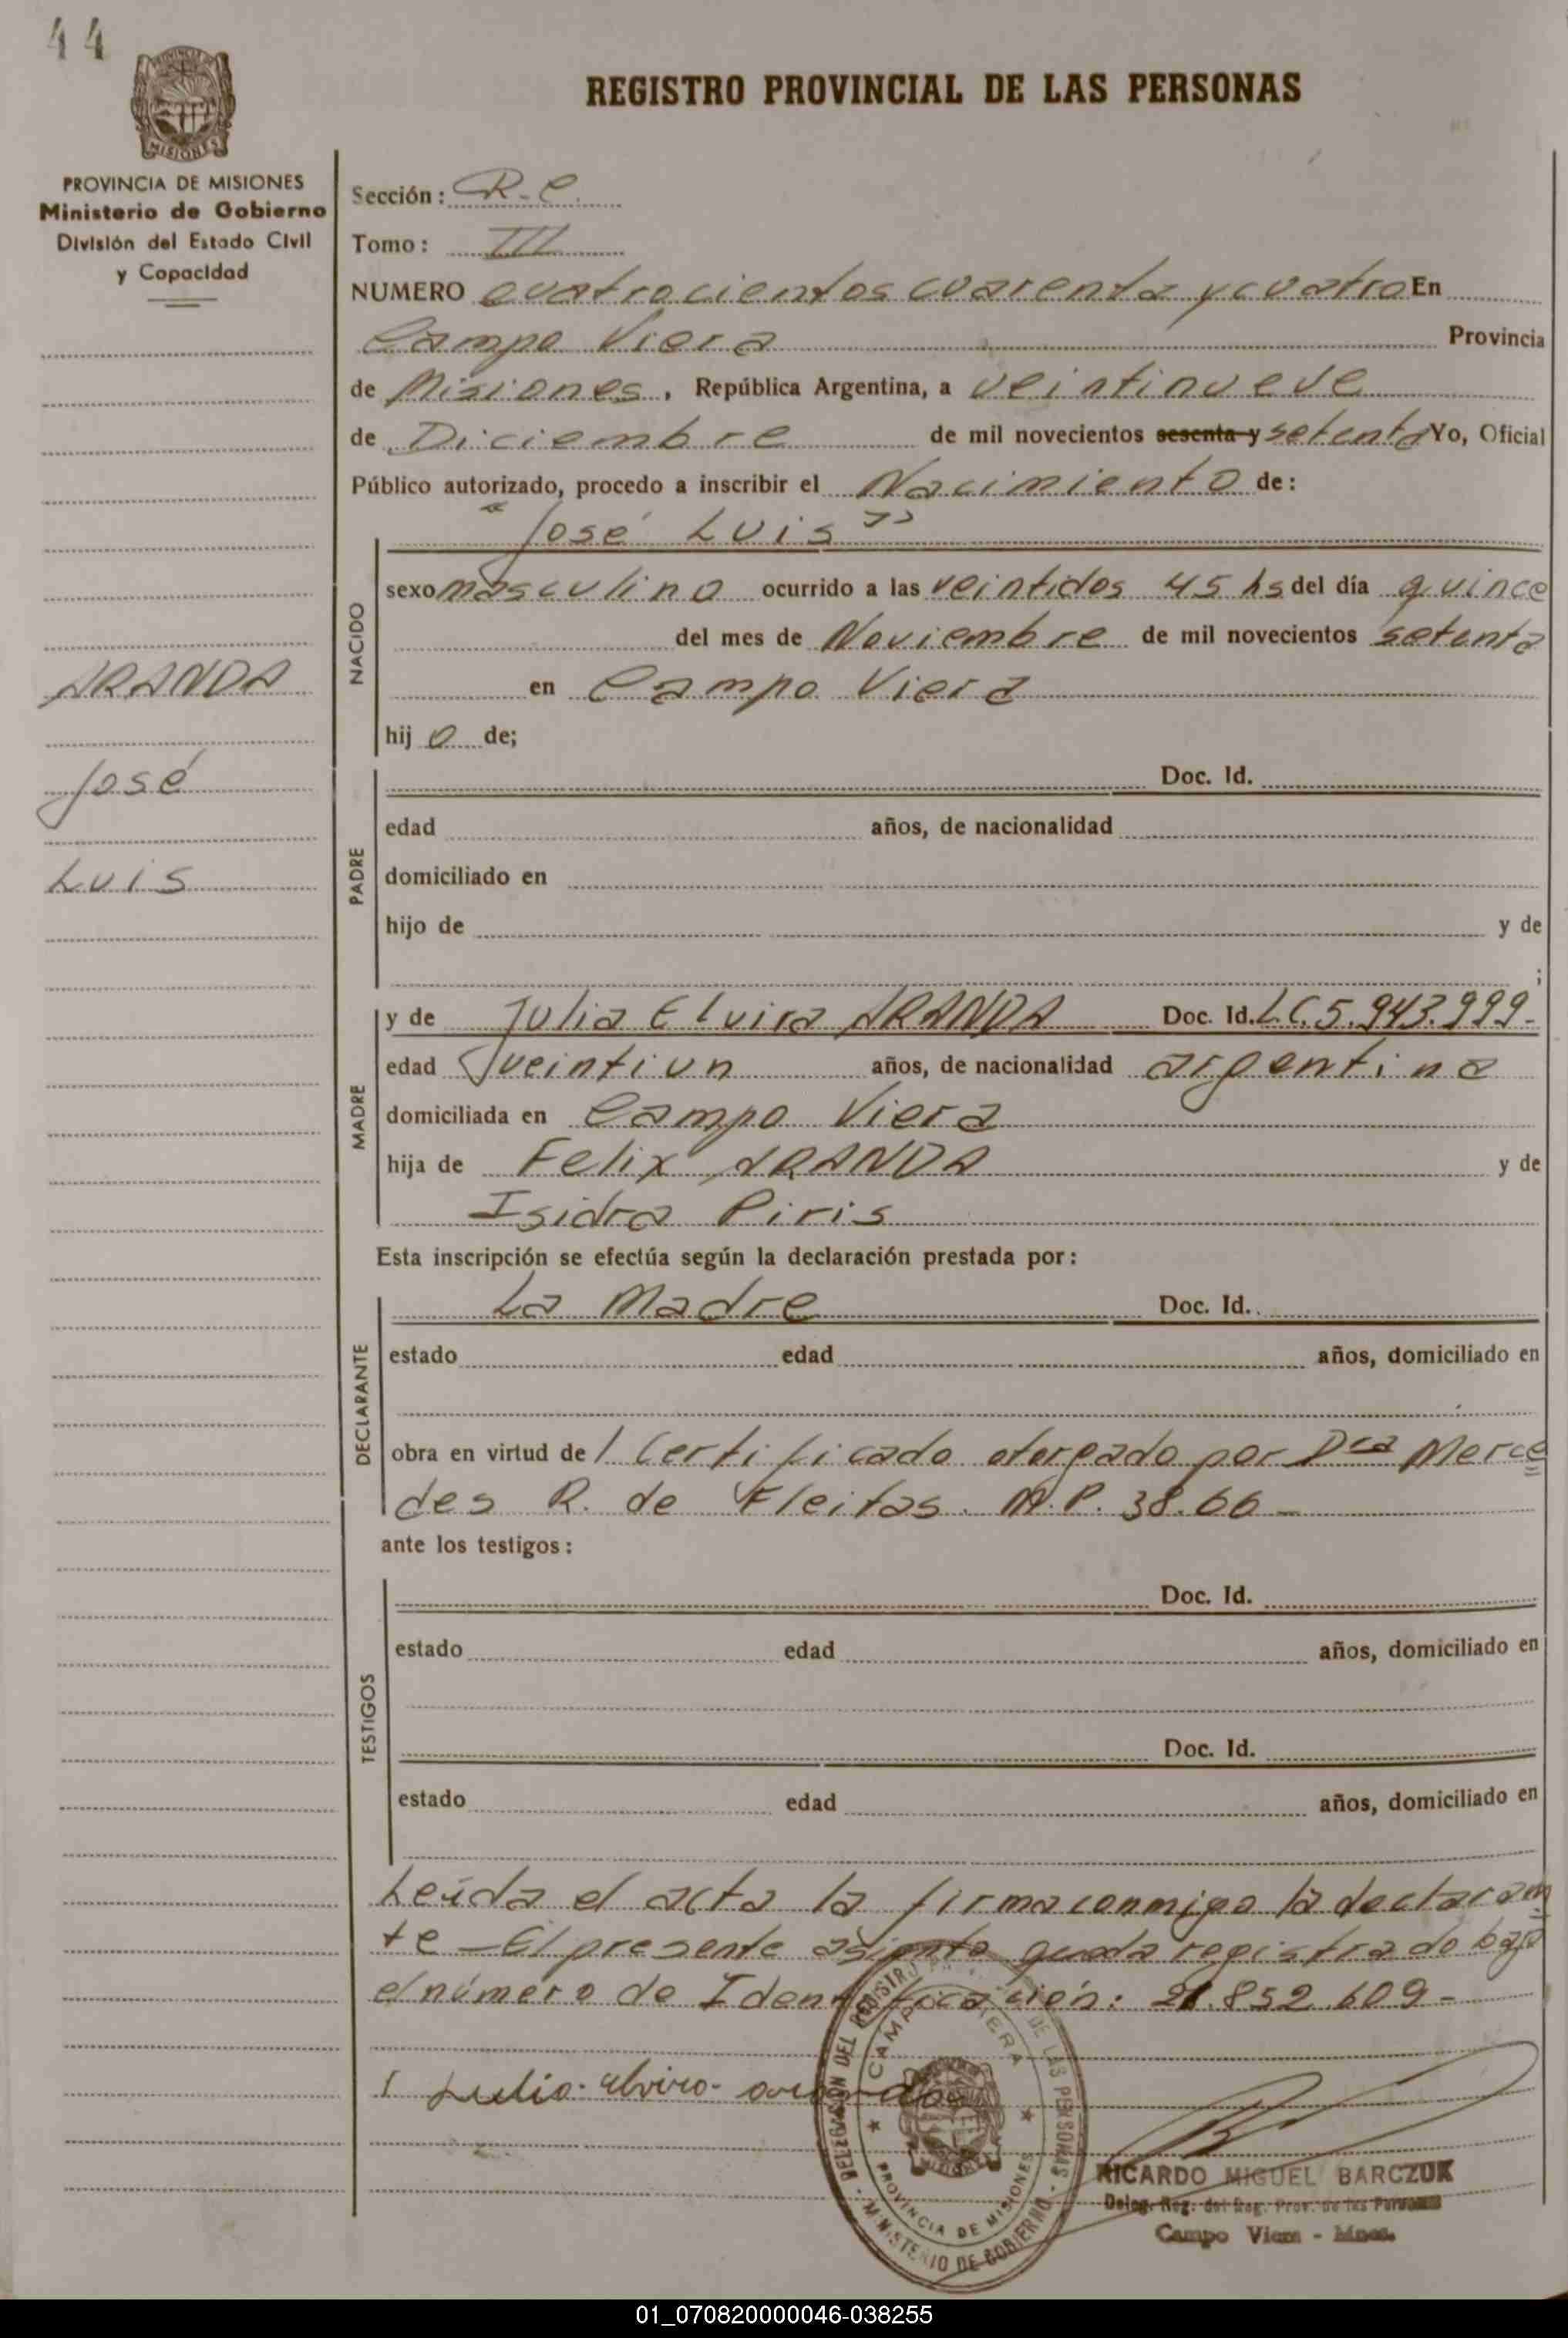 44
REGISTRO PROVINCIAL DE LAS PERSONAS
PROVINCIA DE MISIONES
MISIONES
PROVINCIA DE MISIONES
Ministerio de Gobierno
División del Estado Civil
y Capacidad
ARANDA
José
Luis
Sección: R.C.
Tomo: III
NUMERO cuatrocientos cuarenta y cuatro En
Campo Viera Provincia
de Misiones, República Argentina, a veintinueve
de Diciembre de mil novecientos sesenta y setenta Yo, Oficial
Público autorizado, procedo a inscribir el Nacimiento de:
"José Luis"
NACIDO
sexo masculino ocurrido a las veintidos 45 hs del día quince
del mes de Noviembre de mil novecientos setenta
en Campo Viera
hij o de;
PADRE
Doc. Id.
edad años, de nacionalidad
domiciliado en
hijo de y de
;
MADRE
y de Julia Elvira ARANDA Doc. Id. L.C. 5.943.999-
edad veintiun años, de nacionalidad argentina
domiciliada en Campo Viera
hija de Felix ARANDA y de
Isidra Piris
Esta inscripción se efectúa según la declaración prestada por:
DECLARANTE
La Madre Doc. Id.
estado edad años, domiciliado en
obra en virtud de 1 Certificado otorgado por Dra Merce
des R. de Fleitas. M.P. 38.66-
ante los testigos:
TESTIGOS
Doc. Id.
estado edad años, domiciliado en
Doc. Id.
estado edad años, domiciliado en
Leída el acta la firma conmigo la declaran
te - El presente asiento queda registrado bajo
el número de Identificación: 21.852.609-
Julia Elvira aranda
DELEGACION DEL REGISTRO DE LAS PERSONAS
CAMPO VIERA
PROVINCIA DE MISIONES
MINISTERIO DE GOBIERNO
RICARDO MIGUEL BARCZUK
Deleg. Reg. del Reg. Prov. de las Personas
Campo Viera - Mnes.
01_070820000046-038255